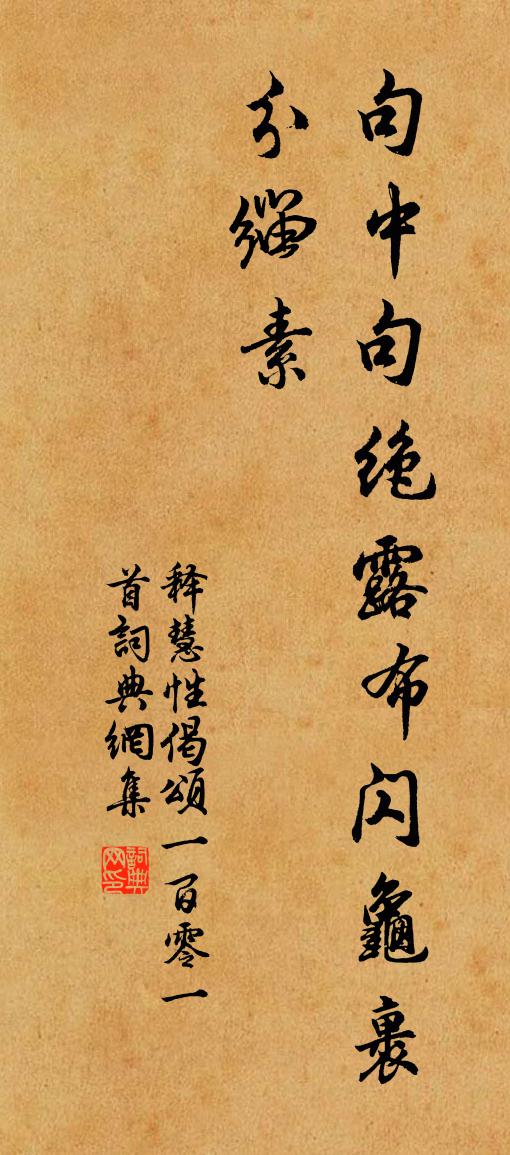 句中句绝露布闪龜裹
分缁素
释慧性偈頌一百零一
首詞典網集
詞典网印